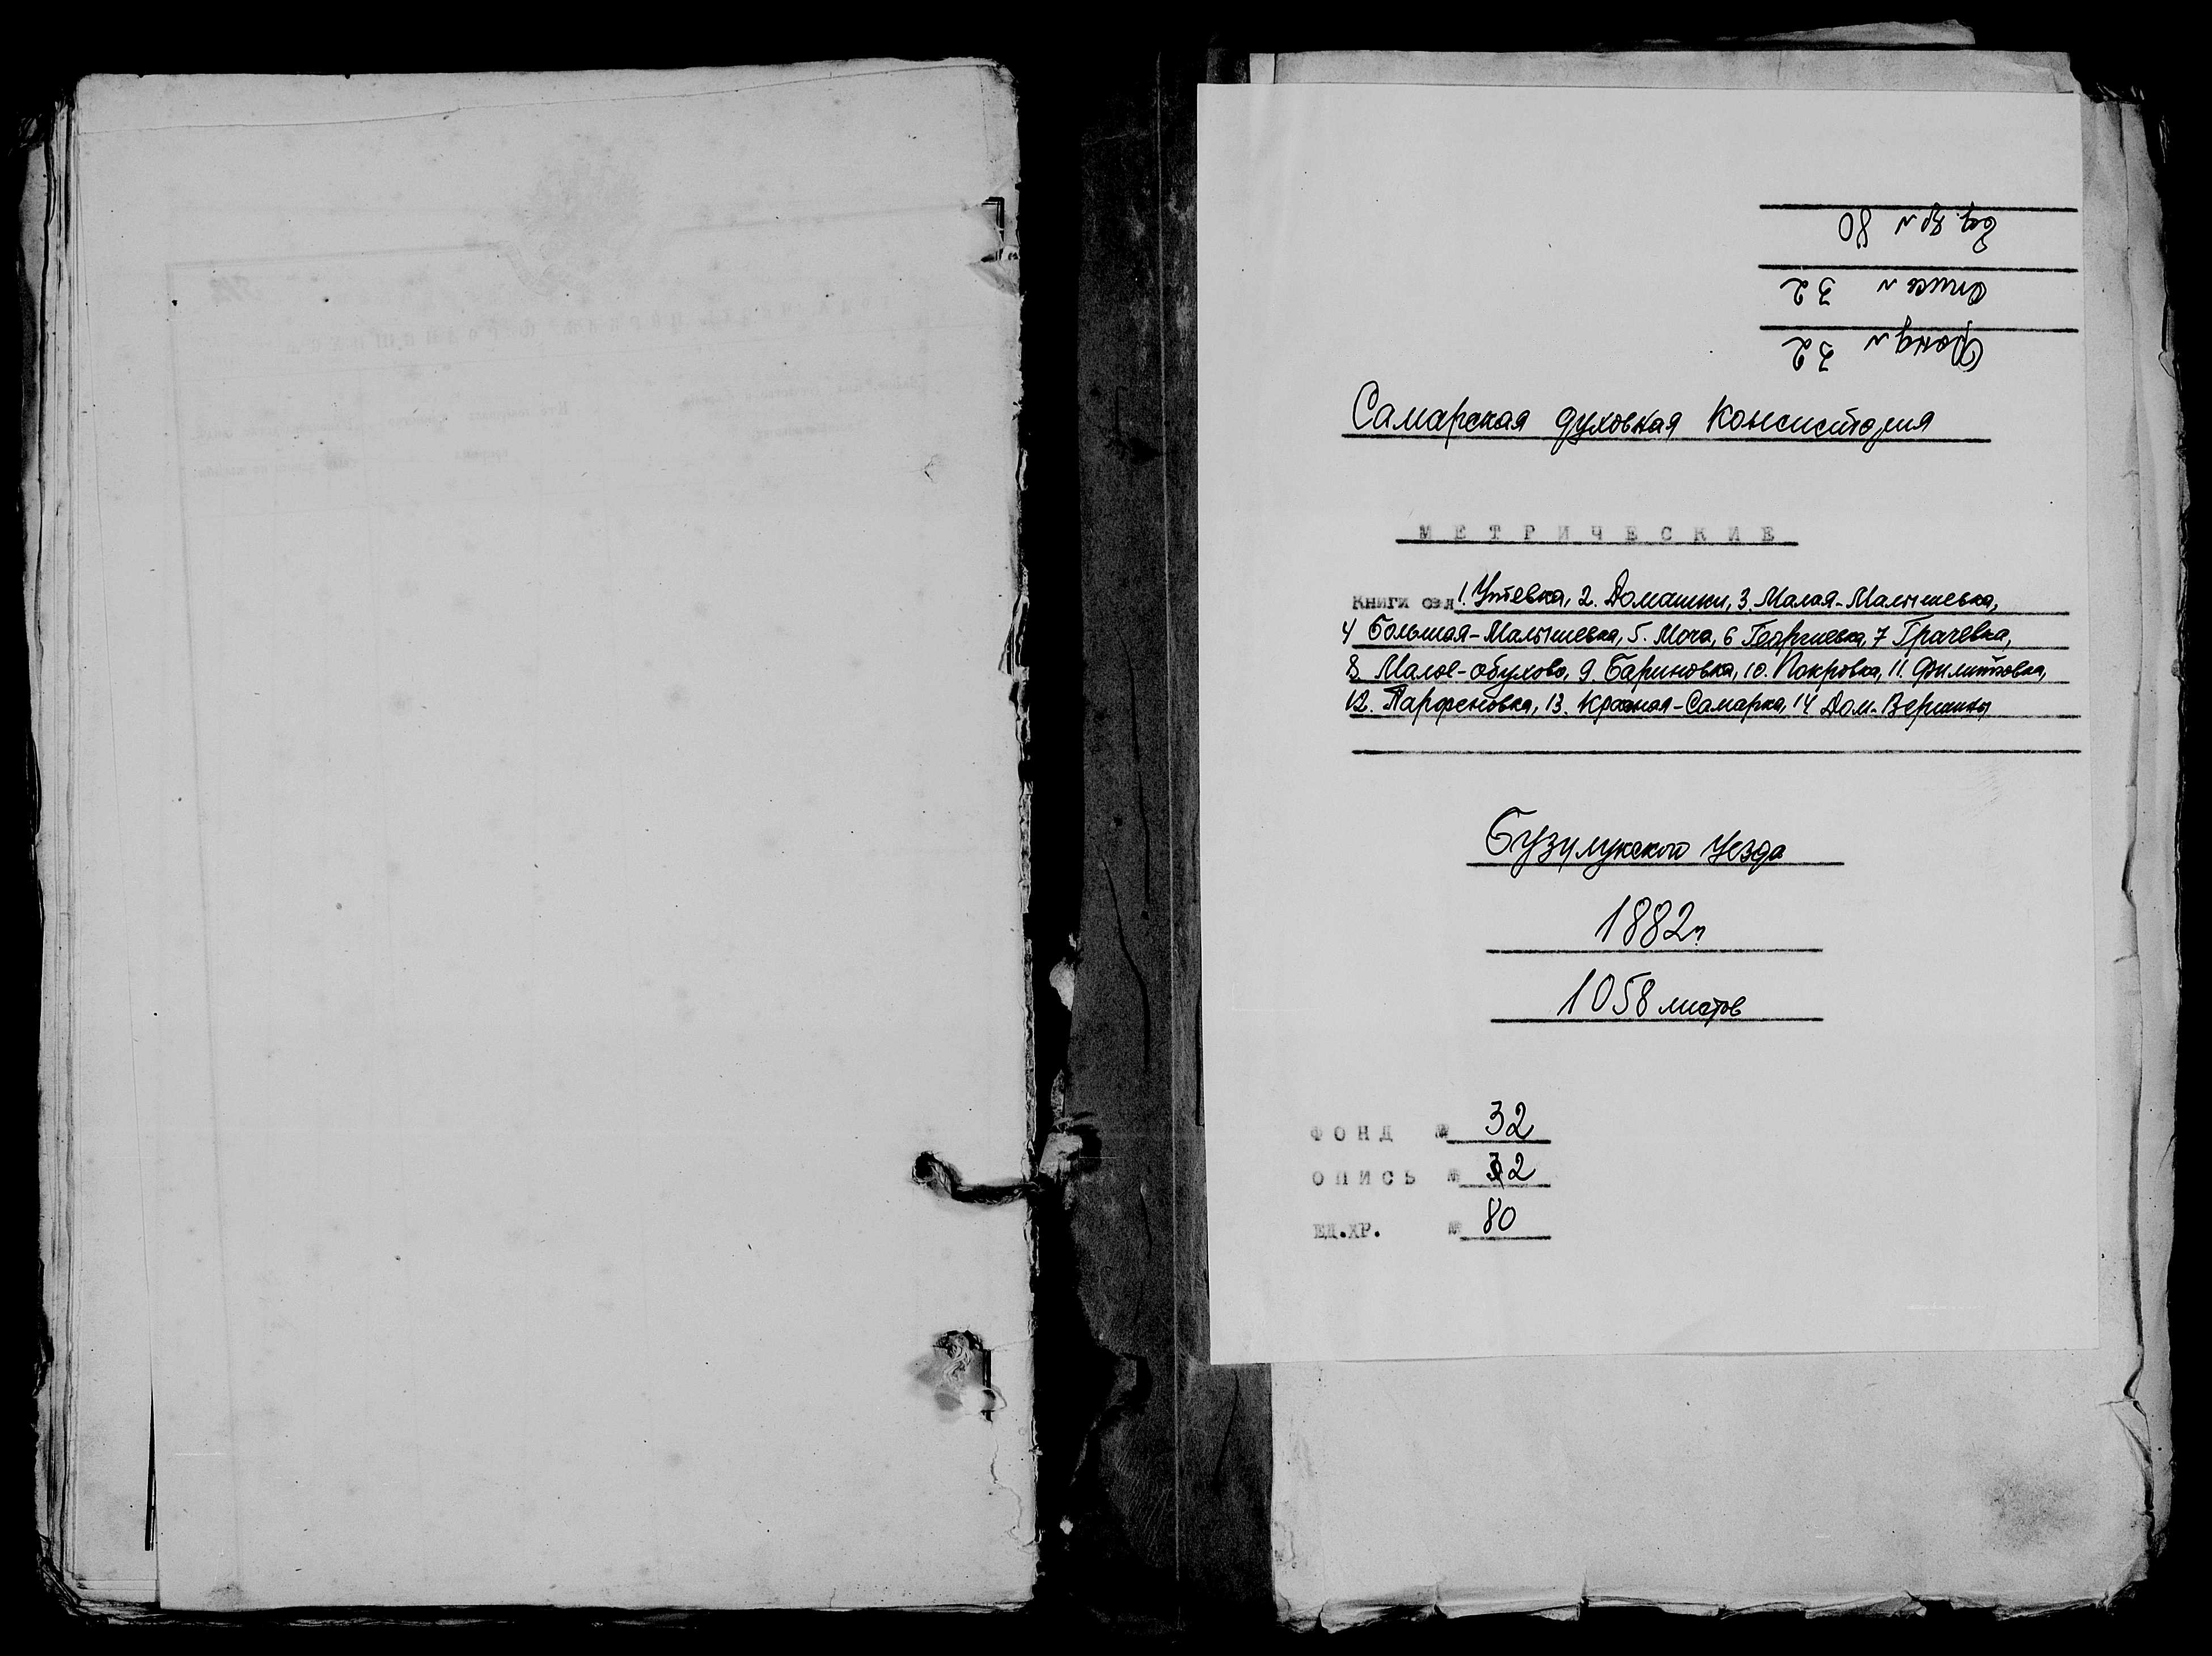 Ед. хр. № 80
Опись № 32
Фонд № 32
Самарская духовная Консистория
МЕТРИЧЕСКИЕ
Книги сел 1. Утевка, 2. Домашки, 3. Малая-Малышевка,
4 Большая-Малышевка, 5. Моча, 6 Георгиевка, 7 Грачевка,
8. Малое-Обухово, 9. Бариновка, 10. Покровка, 11. Филиповка,
12. Парфеновка, 13. Красная-Самарка, 14 Дом.-Вершины
Бузулукского уезда
1882г.
1058 листов
ФОНД № 32
ОПИСЬ № 32
ЕД.ХР. № 80